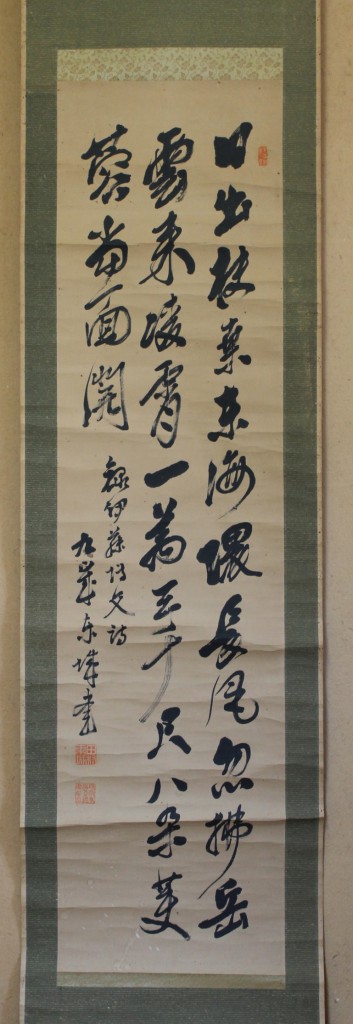 日出扶桑東海隈長風忽拂岳
雲来凌霄一萬三千尺八朶芙
蓉當面開
録伊藤博文詩
九華東城書